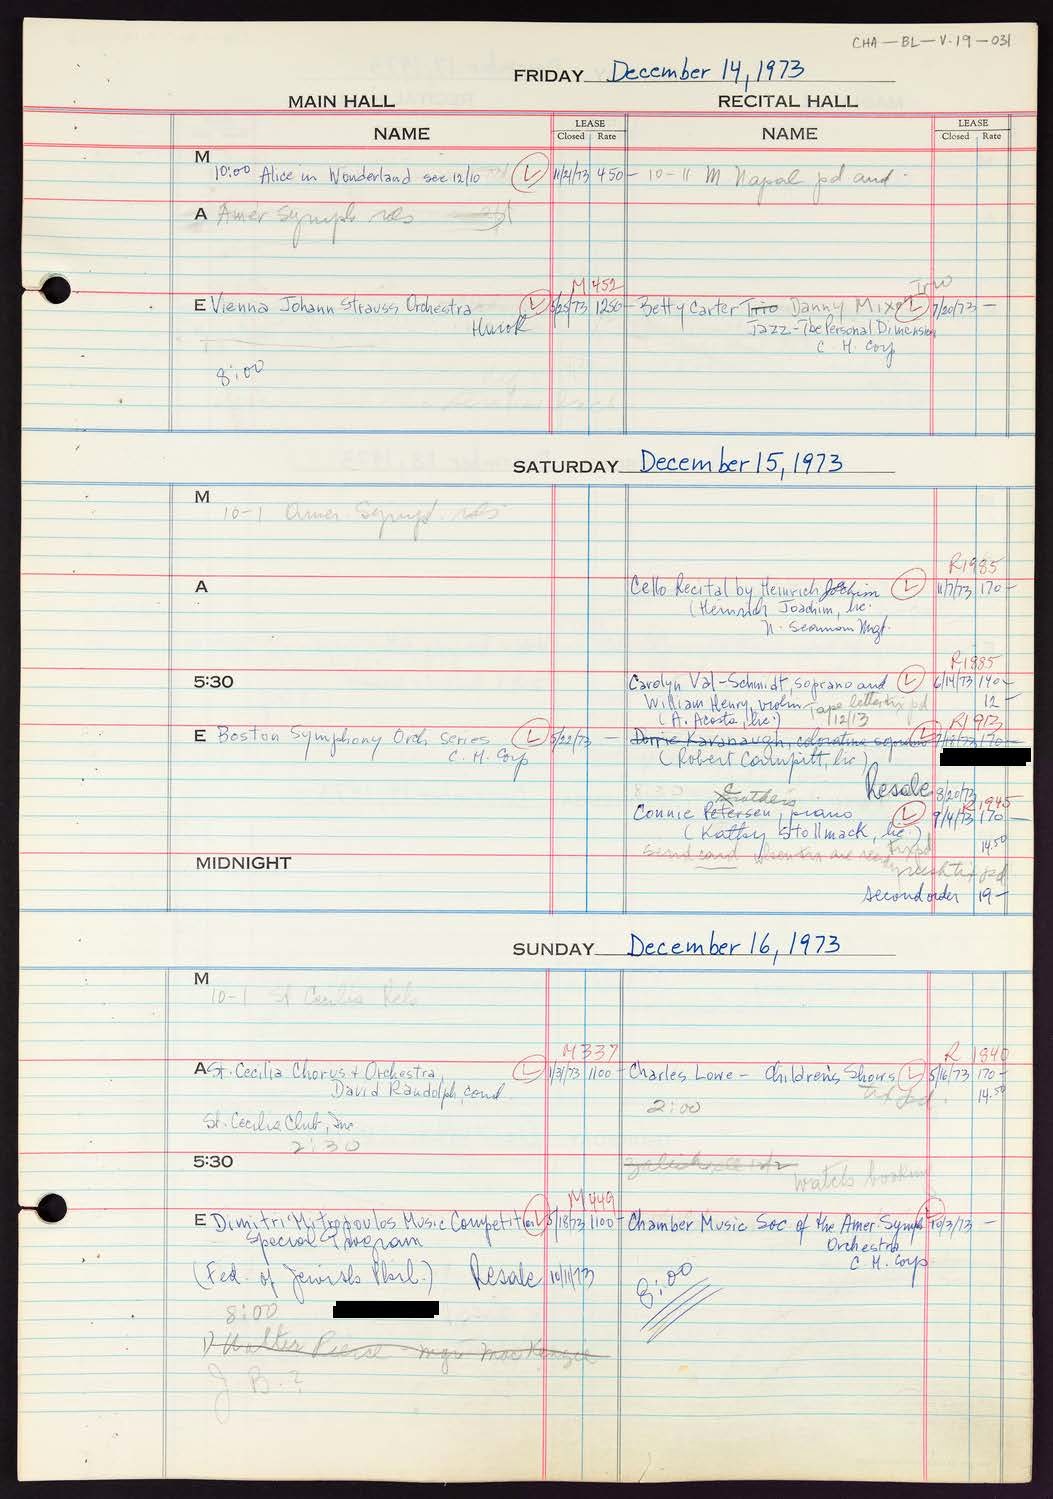 CHA-BL-V.19-031
FRIDAY December 14, 1973
MAIN HALL RECITAL HALL
NAME LEASE Closed Rate NAME LEASE Closed Rate
M
10:00 Alice in Wonderland see 12/10 L 11/21/73 450- 10-11 M Napal pd and
A Amer Symph rehs
M 452
Trio
E Vienna Johann Strauss Orchestra L 5/25/73 1250- Betty Carter Trio Danny Mixon L 7/20/73 -
Hurok Jazz-The Personal Dimension
C. H. Corp
8:00
SATURDAY December 15, 1973
M
10-1 Amer Symph. rehs
R1985
A Cello Recital by Heinrich Joachim L 11/7/73 170-
(Heinrich Joachim, lic.
N. Seaman Mgt.
R1885
5:30 Carolyn Val-Schmidt, soprano and L 6/14/73 140-
William Henry, violin Tape letter tix pd 12-
(A. Acosta, lic.) 12/13
R1913
E Boston Symphony Orch Series L 5/22/73 - Dorrie Kavanaugh, coloratura soprano L 7/18/73 170-
C. H. Corp (Robert, lic)
Resale 8/20/73
R1945
Connie Petersen, piano L 9/4/73 170-
(Kathy Stollmack, lic.) 14.50
send card when tix are ready tix pd
MIDNIGHT
rush tix pd
second order 19-
SUNDAY December 16, 1973
M
10-1 St Cecilia Rehs
M337 R 1840
A St. Cecilia Chorus + Orchestra L 1/31/73 1100- Charles Lowe - Children's Shows L 5/16/73 170-
David Randolph, cond. tix pd. 14.50
2:00
St. Cecilia Club, Inc
2:30
5:30 12/2
watch booking
M449
E Dimitri Mitropoulos Music Competition L 5/18/73 1100- Chamber Music Soc of the Amer. Symph L 10/3/73 -
Special Program Orchestra
C. H. Corp.
(Fed. of Jewish Phil.) Resale 10/11/73
8:00
8:00
Walter Pierce - mgr MacKenzie
J. B.?